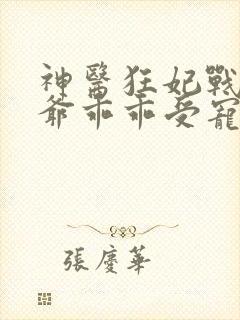 神醫狂妃戰
爺乖乖受寵
張慶華